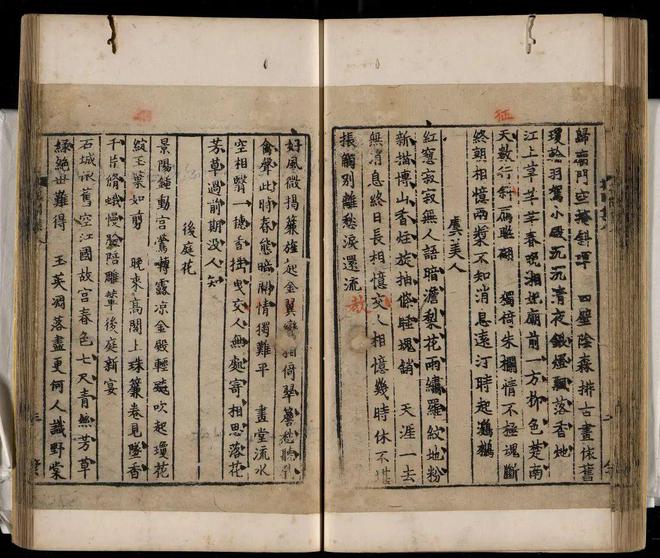 歸廟門空掩斜暉　四壁陰森排古畫依舊
瓊輪羽駕小殿沉沉清夜銀燈飄落香灺
江上草芊芊春晚湘妃廟前一方卵色楚南
天數行斜鴈聯翩　獨倚朱欄情不極魂斷
終朝相憶兩槳不知消息遠汀時起鸂鶒
虞美人
紅窻寂寂無人語暗澹梨花雨繡羅紋地粉
新描博山香炷旋抽條睡魂銷　天涯一去
無消息終日長相憶交人相憶幾時休不堪
振觸別離愁淚還流
好風微揭簾旌起金翼鸞相倚翠簷愁聽乳
禽聲此時春態暗關情獨難平　畫堂流水
空相翳一穗香摇曳交人無處寄相思落花
芳草過前期没人知
後庭花
景陽鍾動宮鶯囀露凉金殿輕飈吹起瓊花
綻玉葉如剪　晚來高閣上珠簾卷見墜香
千片脩蛾慢臉陪雕輦後庭新宴
石城依舊空江國故宮春色七尺青絲芳草
緑絶世難得　玉英凋落盡更何人識野棠